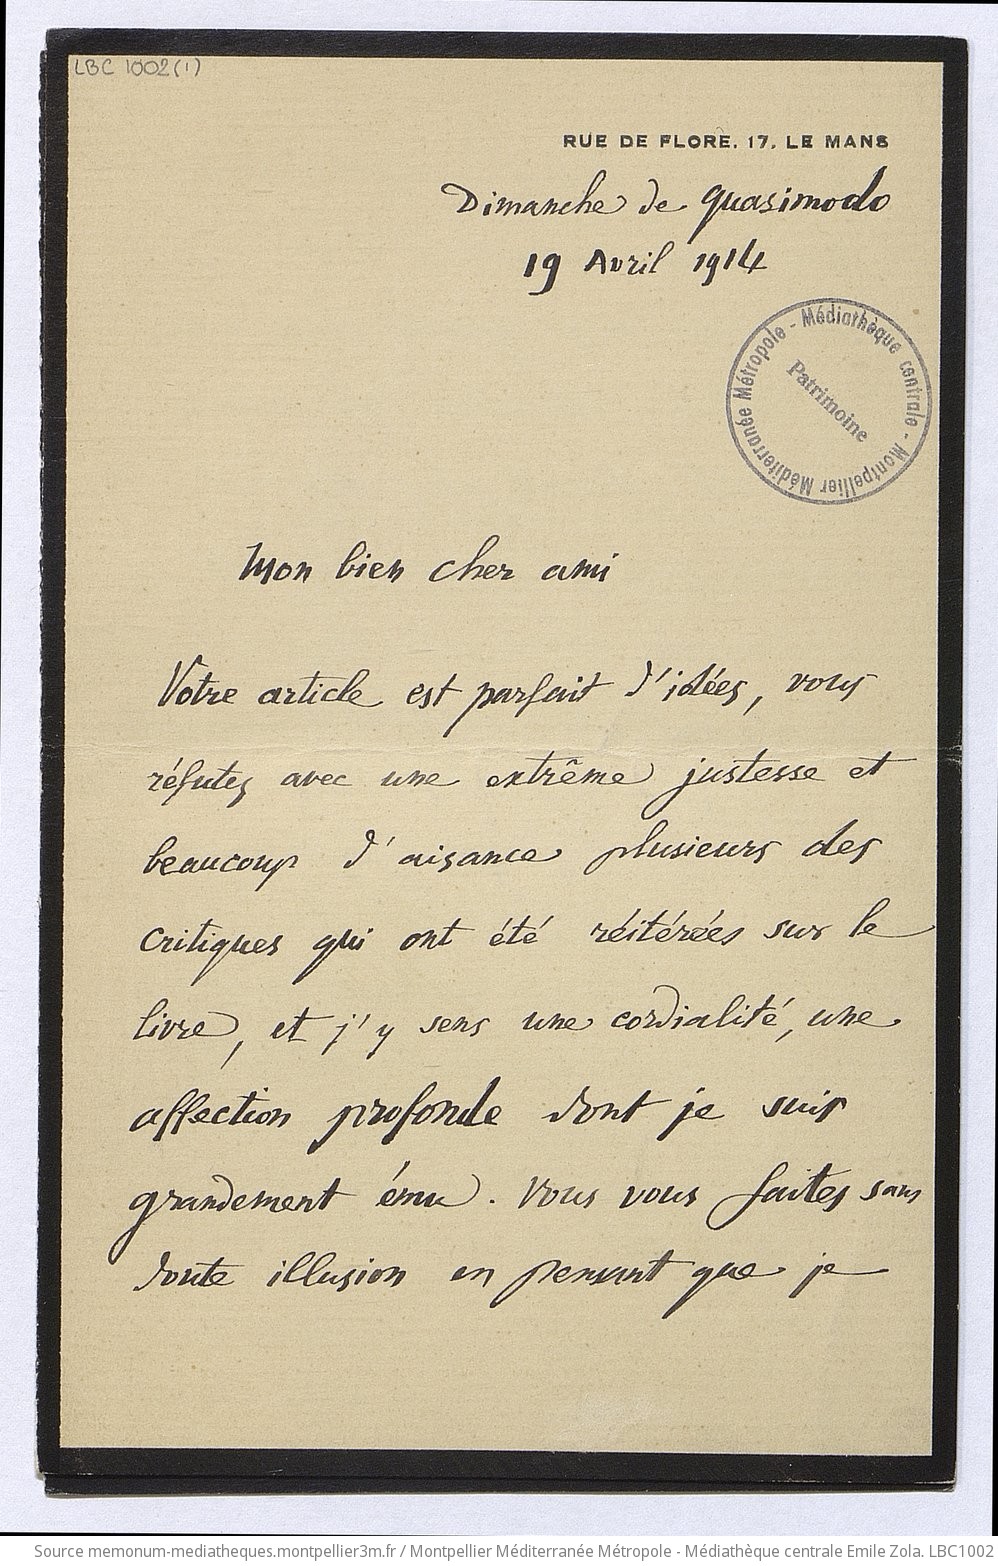 LBC 1002(1)
RUE DE FLORE. 17. LE MANS
Dimanche de quasimodo
19 Avril 1914
Médiathèque centrale - Montpellier Méditerranée Métropole -
Patrimoine
Mon bien cher ami
Votre article est parfait d'idées, vous
réfutez avec une extrême justesse et
beaucoup d'aisance plusieurs des
critiques qui ont été réitérées sur le
livre, et j'y sens une cordialité, une
affection profonde dont je suis
grandement ému. Vous vous faites sans
doute illusion en pensant que je
Source memonum-mediatheques.montpellier3m.fr / Montpellier Méditerranée Métropole - Médiathèque centrale Emile Zola. LBC1002